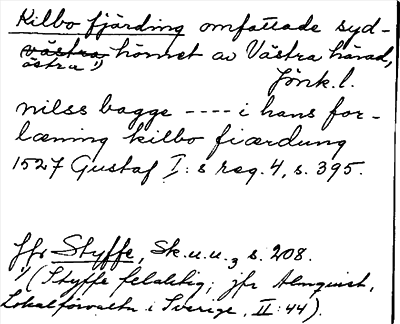 Kilbo fjärding omfattade syd-
västra hörnet av Västra härad,
östra 1)
Jönk.l.
nilss bagge ---- i hans for-
læning kilbo fiærdung
1527 Gustaf I:s reg. 4, s. 395.
Jfr Styffe, Sk.u.u.3 s. 208.
1) (Styffe felaktig; jfr Almquist,
Lokalförvaltn i Sverige, II:44).